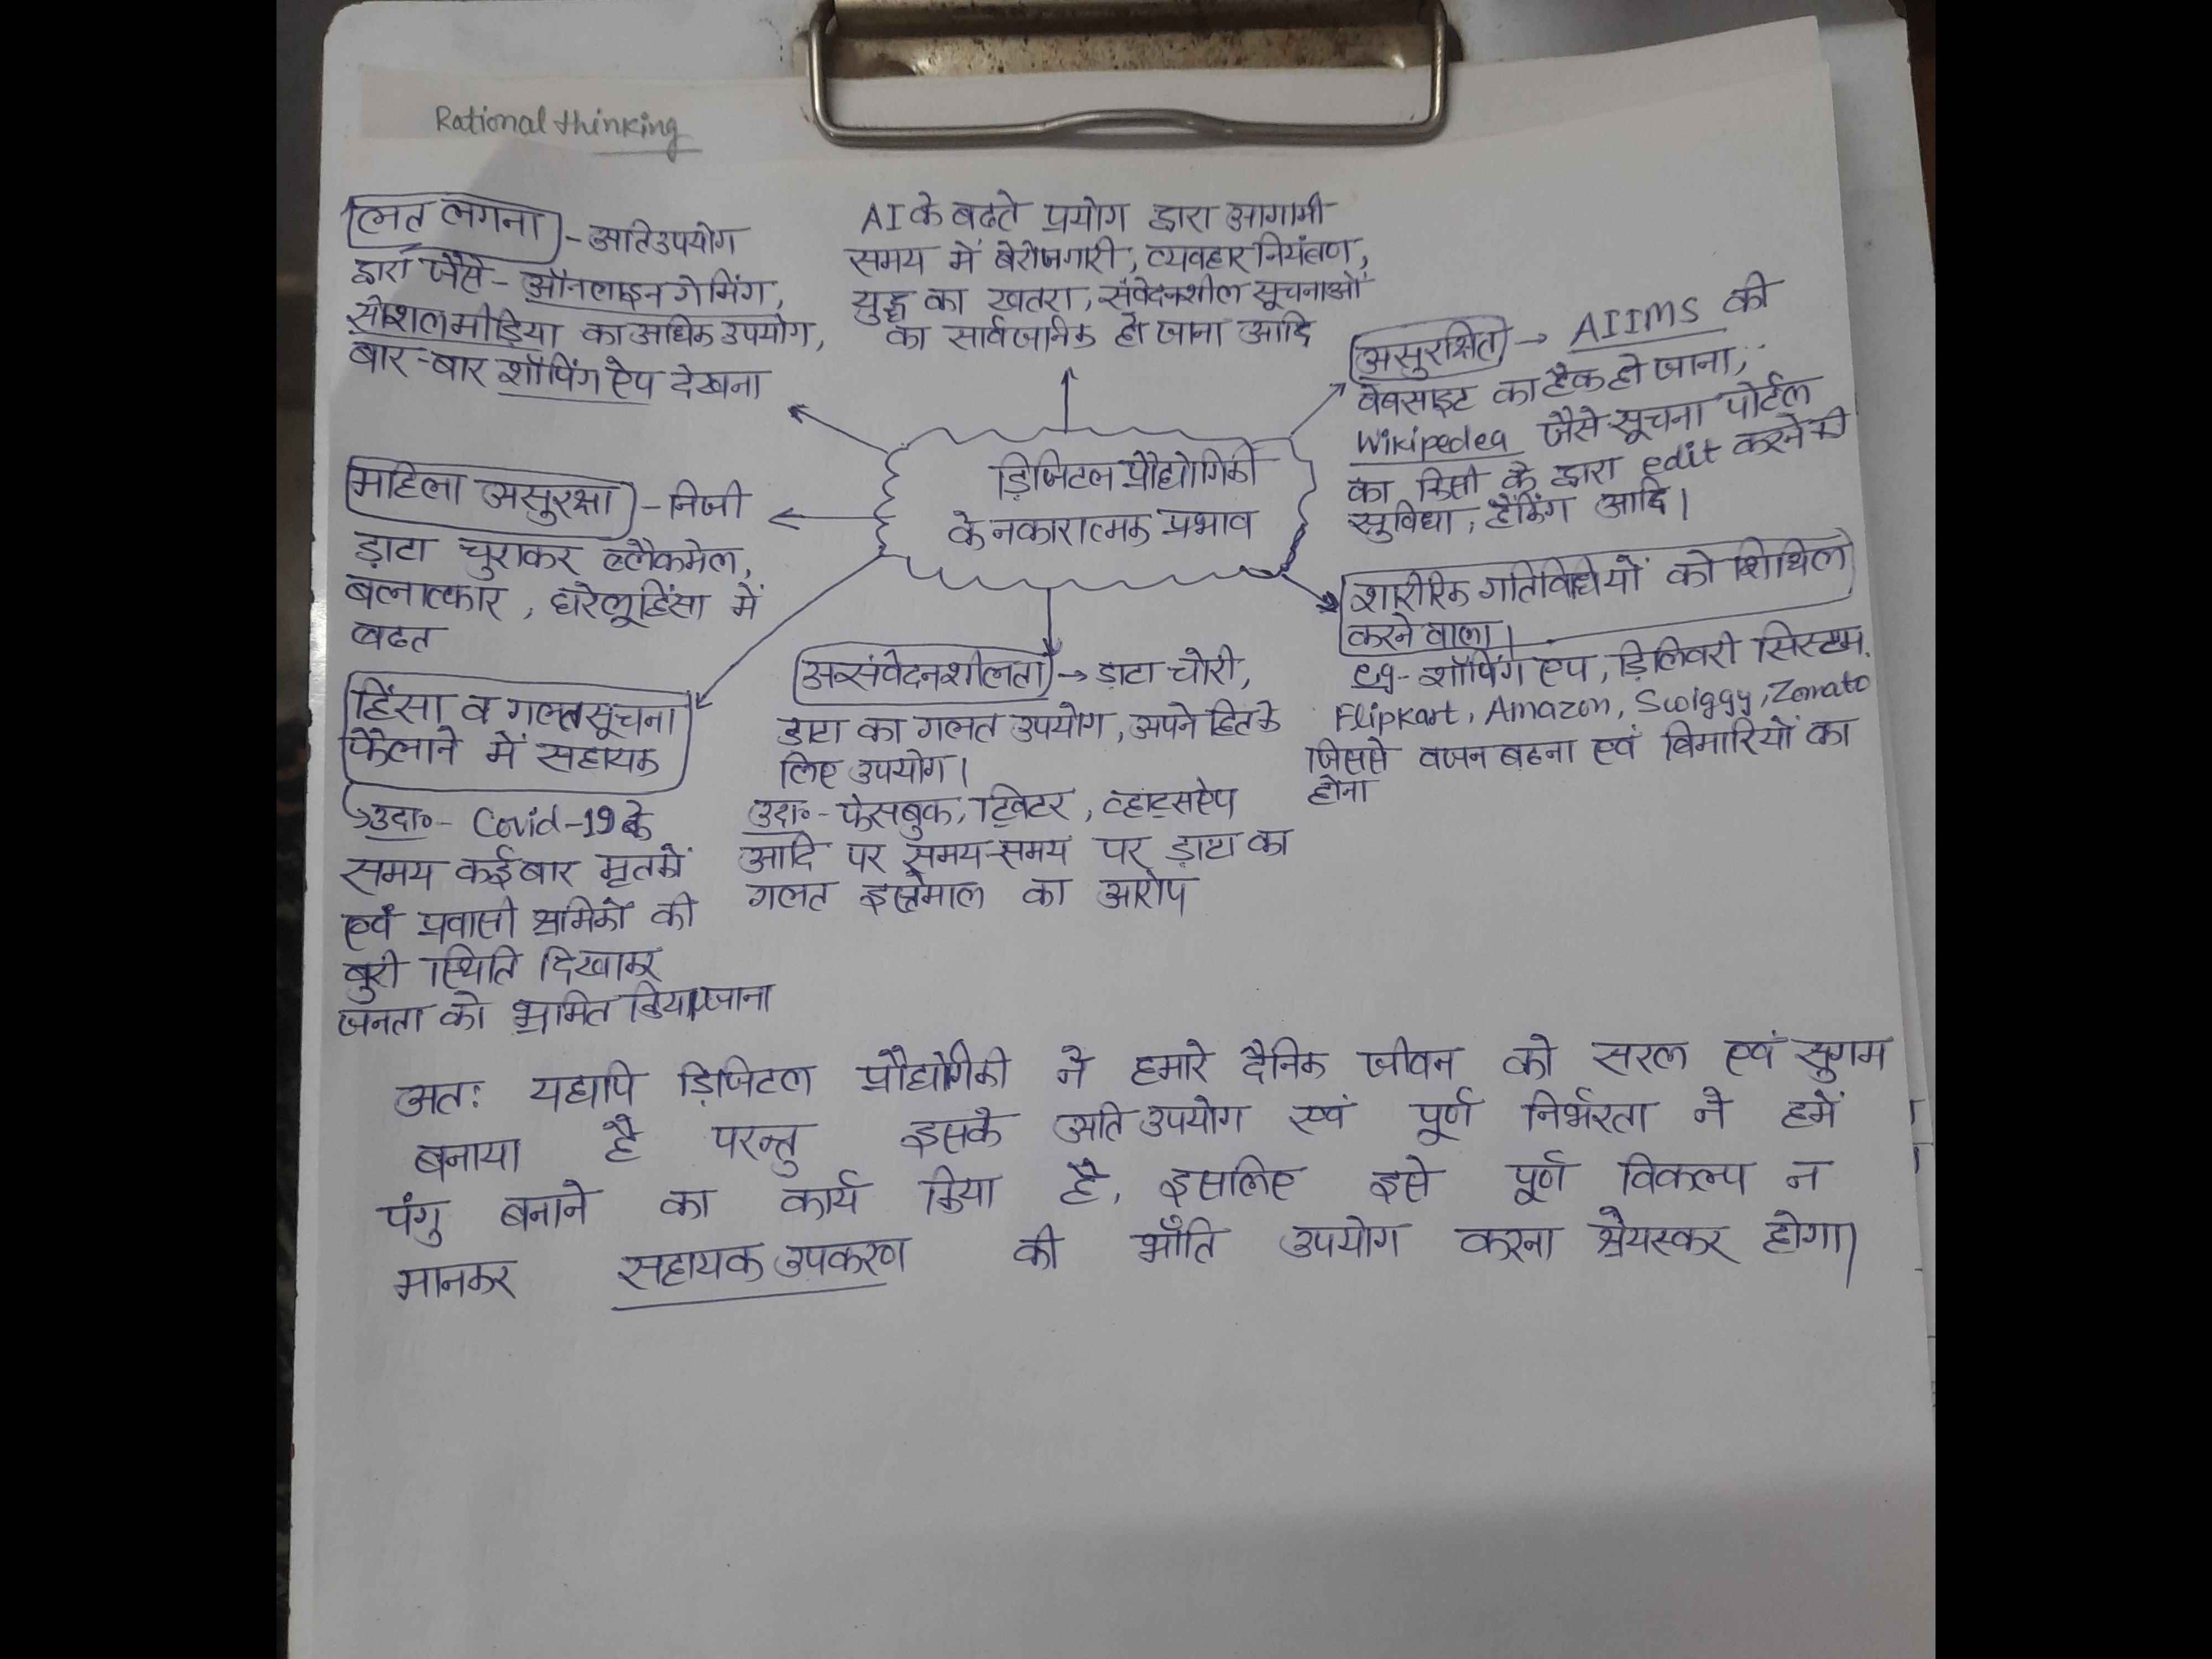 Rational thinking
लत लगना - अतिउपयोग
द्वारा जैसे - ऑनलाइन गेमिंग,
सोशल मीडिया का अधिक उपयोग,
बार-बार शॉपिंग ऐप देखना
AI के बढते प्रयोग द्वारा आगामी
समय में बेरोजगारी, व्यवहार नियंत्रण,
युद्ध का खतरा, संवेदनशील सूचनाओं
का सार्वजनिक हो जाना आदि
असुरक्षित → AIIMS की
वेबसाइट का हैक हो जाना,
Wikipedea जैसे सूचना पोर्टल
का किसी के द्वारा edit करने की
सुविधा, हैकिंग आदि।
डिजिटल प्रौद्योगिकी
के नकारात्मक प्रभाव
महिला असुरक्षा - निजी
डाटा चुराकर ब्लैकमेल,
बलात्कार, घरेलू हिंसा में
बढत
शारीरिक गतिविधियों को शिथिल
करने वाला।
eg - शॉपिंग एप, डिलिवरी सिस्टम,
Flipkart, Amazon, Swiggy, Zomato
जिससे वजन बढना एवं बिमारियों का
होना
असंवेदनशीलता → डाटा चोरी,
डाटा का गलत उपयोग, अपने हित के
लिए उपयोग।
उदा० - फेसबुक, ट्विटर, व्हाट्सऐप
आदि पर समय-समय पर डाटा का
गलत इस्तेमाल का आरोप
हिंसा व गलत सूचना
फैलाने में सहायक
उदा० - Covid-19 के
समय कई बार मृतकों
एवं प्रवासी श्रमिकों की
बुरी स्थिति दिखाकर
जनता को भ्रमित किया जाना
अतः यद्यपि डिजिटल प्रौद्योगिकी ने हमारे दैनिक जीवन को सरल एवं सुगम
बनाया है परन्तु इसके अति उपयोग एवं पूर्ण निर्भरता ने हमें
पंगु बनाने का कार्य किया है, इसलिए इसे पूर्ण विकल्प न
मानकर सहायक उपकरण की भाँति उपयोग करना श्रेयस्कर होगा।